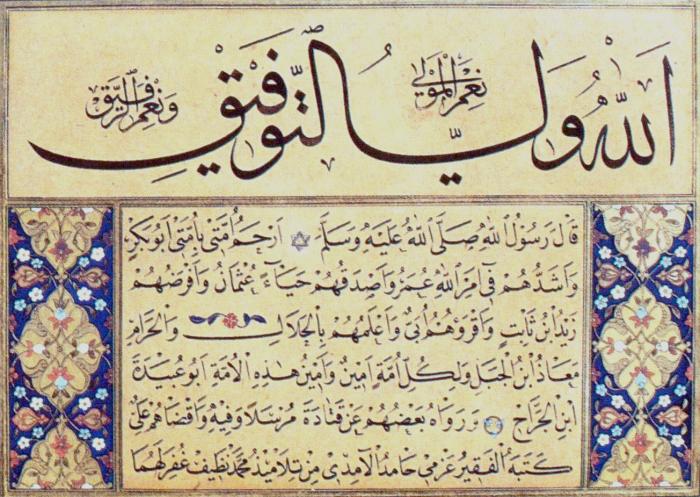 الله ولي التوفيق
نعم المولى
ونعم الرفيق
قال رسول الله صلى الله عليه وسلم ارحم أمتي بأمتي أبو بكر
وأشدهم في أمر الله عمر وأصدقهم حياء عثمان وأفرضهم
زيد ابن ثابت وأقرؤهم أبي وأعلمهم بالحلال والحرام
معاذ ابن الجبل ولكل أمة أمين وأمين هذه الأمة أبو عبيدة
ابن الجراح ورواه بعضهم عن قتادة مرسلا وفيه وأقضاهم علي
كتبه الفقير عزمي حامد الآمدي من تلاميذ محمد نظيف غفر لهما